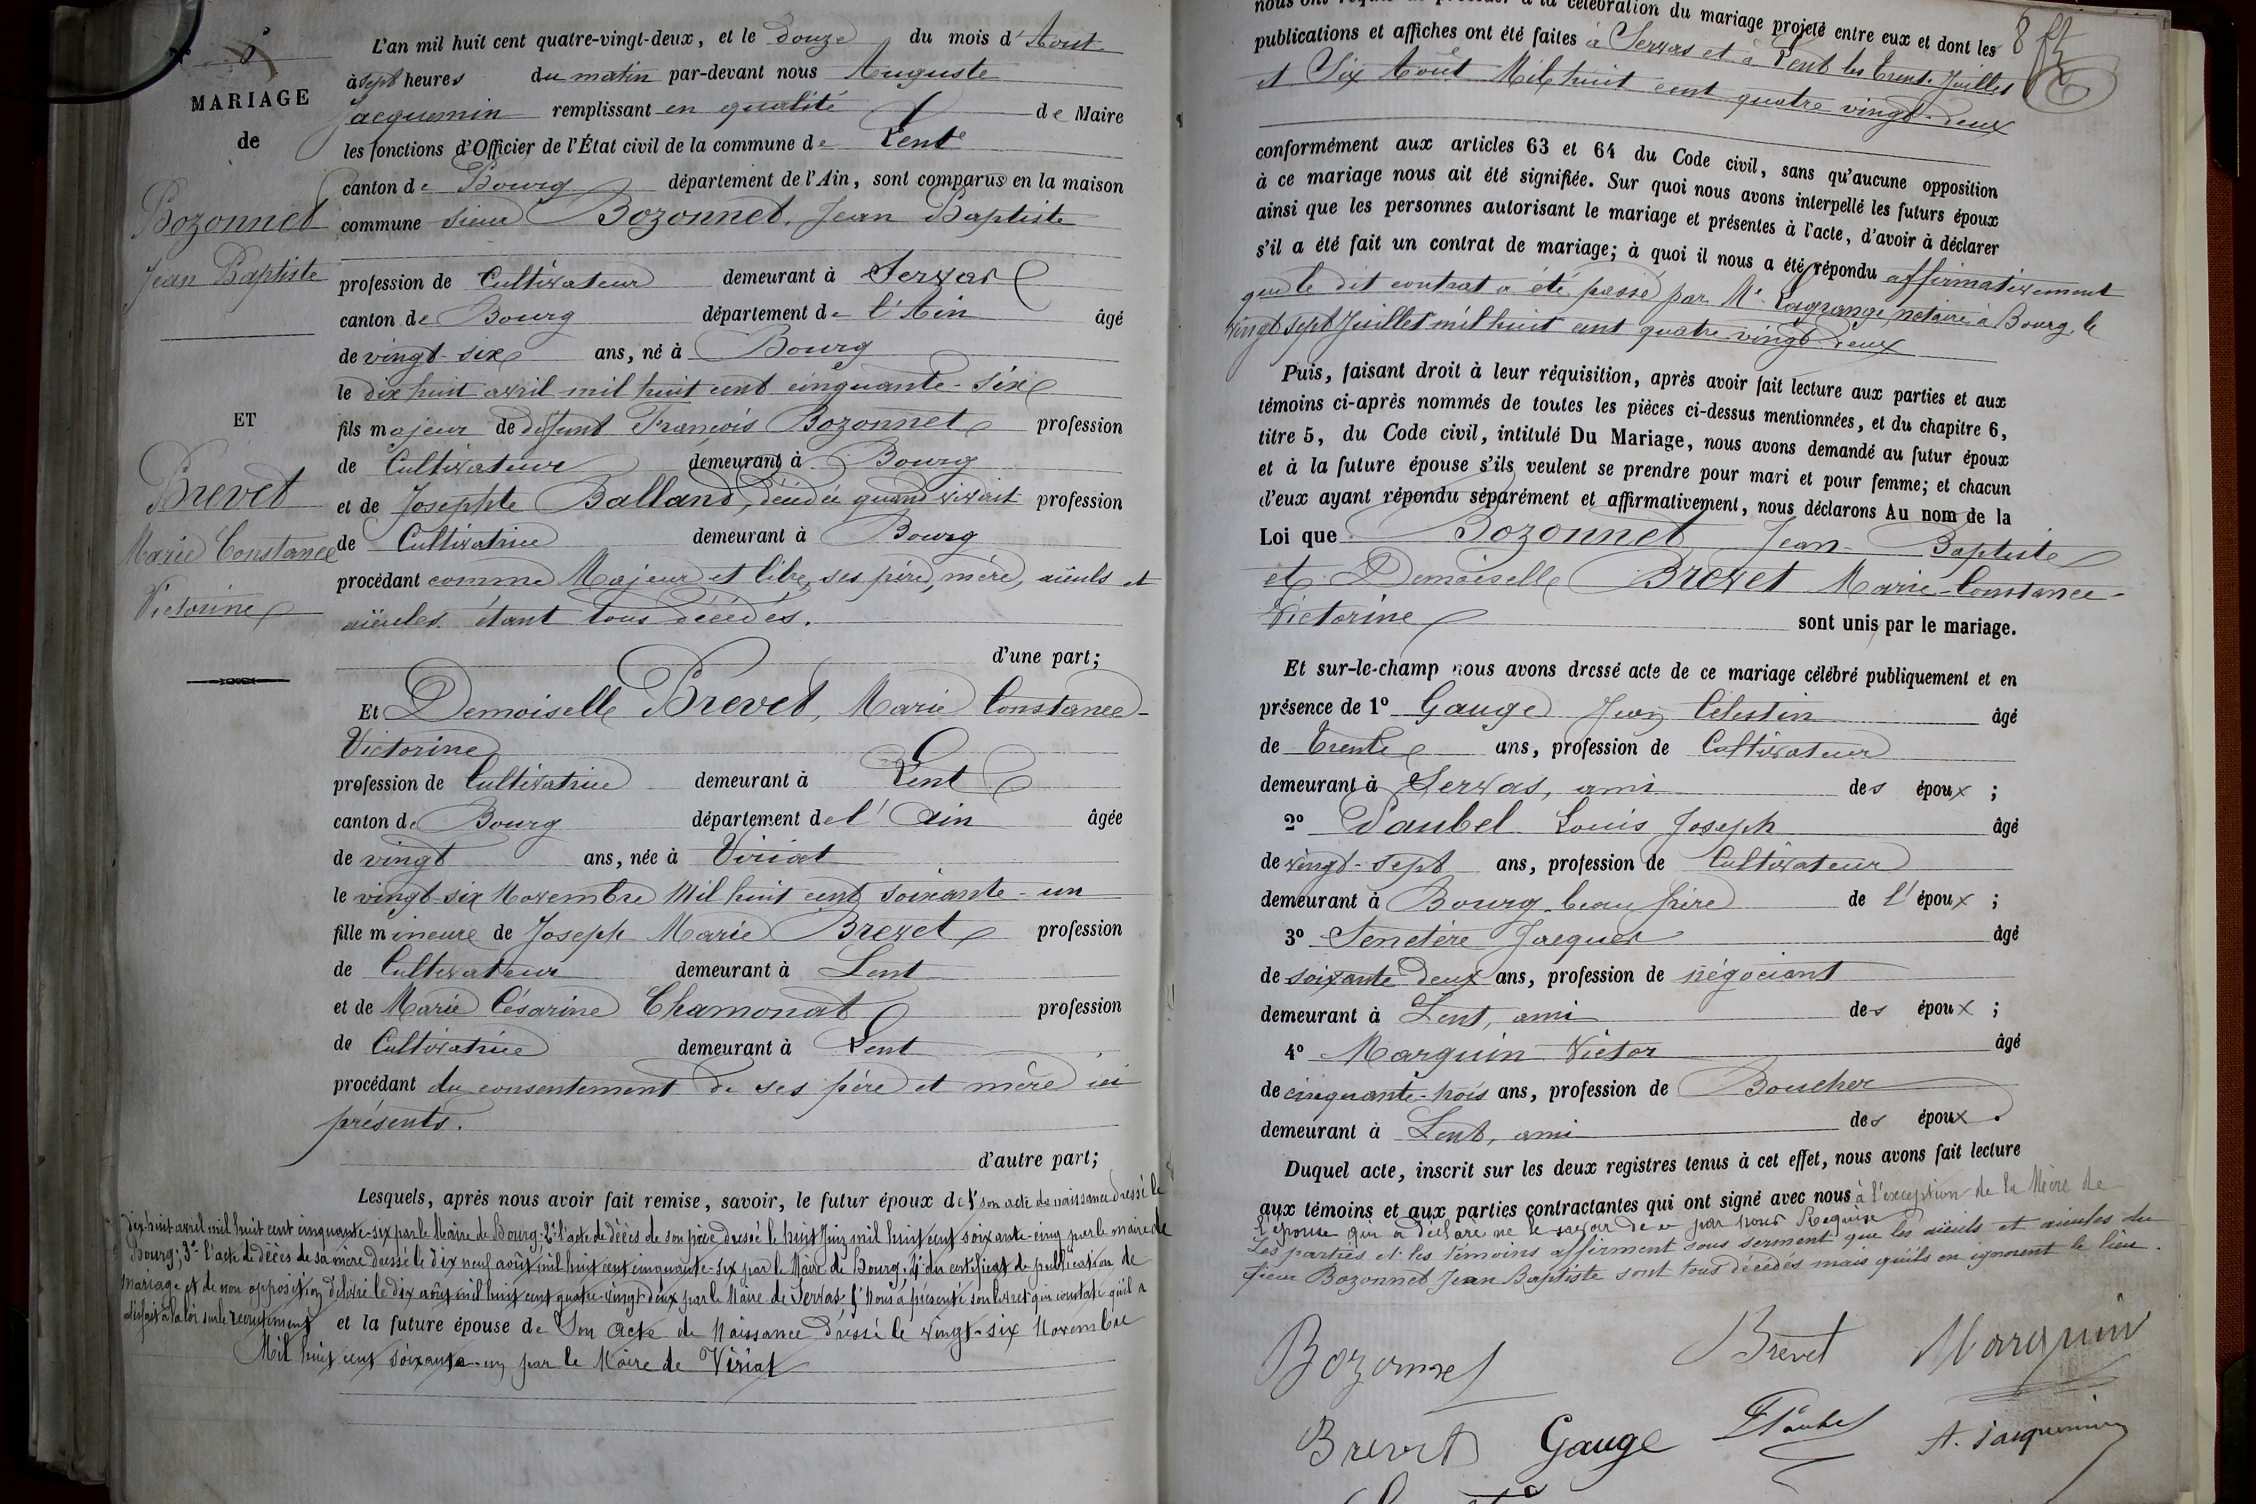 MARIAGE
de
Bozonnet
Jean Baptiste
ET
Brevet
Marie Constance
Victorine
L'an mil huit cent quatre-vingt-deux, et le douze du mois d'Aout
à sept heures du matin par-devant nous Auguste
Jacquemin remplissant en qualité de Maire
les fonctions d'Officier de l'État civil de la commune de Lent
canton de Bourg département de l'Ain, sont comparus en la maison
commune sieur Bozonnet, Jean Baptiste
profession de Cultivateur demeurant à Servas
canton de Bourg département de l'Ain âgé
de vingt-six ans, né à Bourg
le dix huit avril mil huit cent cinquante-six
fils majeur de défunt François Bozonnet profession
de Cultivateur demeurant à Bourg
et de Josephte Balland, décédée quand vivait profession
de Cultivatrice demeurant à Bourg
procédant comme Majeur et libre, ses père, mère, aïeuls et
aïeules étant tous décédés.
d'une part;
Et Demoiselle Brevet, Marie Constance-
Victorine
profession de Cultivatrice demeurant à Lent
canton de Bourg département de l'Ain âgée
de vingt ans, née à Viriat
le vingt-six Novembre Mil huit cent soixante-un
fille mineure de Joseph Marie Brevet profession
de Cultivateur demeurant à Lent
et de Marie Césarine Chamonat profession
de Cultivatrice demeurant à Lent
procédant du consentement de ses père et mère ici
présents.
d'autre part;
Lesquels, après nous avoir fait remise, savoir, le futur époux de 1° son acte de naissance dressé le
dix-huit avril mil huit cent cinquante-six par le Maire de Bourg; 2° l'acte de décès de son père dressé le huit Juin mil huit cent soixante-cinq par le maire de
Bourg; 3° l'acte de décès de sa mère dressé le dix neuf août mil huit cent cinquante-six par le Maire de Bourg; 4° du certificat de publication de
mariage et de non opposition délivré le dix août mil huit cent quatre-vingt-deux par le Maire de Servas; 5° Nous a présenté son livret qui constate qu'il a
satisfait à la loi sur le recrutement et la future épouse de Son Acte de Naissance dressé le vingt-six Novembre
Mil huit cent soixante-un par le Maire de Viriat
8
nous ont requis de procéder à la célébration du mariage projeté entre eux et dont les
publications et affiches ont été faites à Servas et à Lent les trente Juillet
et Six Août Mil huit cent quatre vingt-deux
conformément aux articles 63 et 64 du Code civil, sans qu'aucune opposition
à ce mariage nous ait été signifiée. Sur quoi nous avons interpellé les futurs époux
ainsi que les personnes autorisant le mariage et présentes à l'acte, d'avoir à déclarer
s'il a été fait un contrat de mariage; à quoi il nous a été répondu affirmativement
que le dit contrat a été passé par Me Lagrange, notaire à Bourg, le
vingt sept Juillet mil huit cent quatre vingt-deux
Puis, faisant droit à leur réquisition, après avoir fait lecture aux parties et aux
témoins ci-après nommés de toutes les pièces ci-dessus mentionnées, et du chapitre 6,
titre 5, du Code civil, intitulé Du Mariage, nous avons demandé au futur époux
et à la future épouse s'ils veulent se prendre pour mari et pour femme; et chacun
d'eux ayant répondu séparément et affirmativement, nous déclarons Au nom de la
Loi que Bozonnet Jean-Baptiste
et Demoiselle Brevet Marie-Constance-
Victorine sont unis par le mariage.
Et sur-le-champ nous avons dressé acte de ce mariage célébré publiquement et en
présence de 1° Gauge Jean Célestin âgé
de Trente ans, profession de Cultivateur
demeurant à Servas, ami des époux;
2° Paubel Louis Joseph âgé
de vingt-sept ans, profession de Cultivateur
demeurant à Bourg beau frère de l'époux;
3° Senetère Jacques âgé
de soixante deux ans, profession de négociant
demeurant à Lent, ami des époux;
4° Marguin Victor âgé
de cinquante-trois ans, profession de Boucher
demeurant à Lent, ami des époux.
Duquel acte, inscrit sur les deux registres tenus à cet effet, nous avons fait lecture
aux témoins et aux parties contractantes qui ont signé avec nous à l'exception de la Mère de
l'épouse qui a déclaré ne le savoir de ce par nous Requise
Les parties et les témoins affirment sous serment que les aïeuls et aïeules du
sieur Bozonnet Jean Baptiste sont tous décédés mais qu'ils en ignorent le lieu.
Bozonnet Brevet Marguin
Brevet Gauge Paubel A. Jacquemin